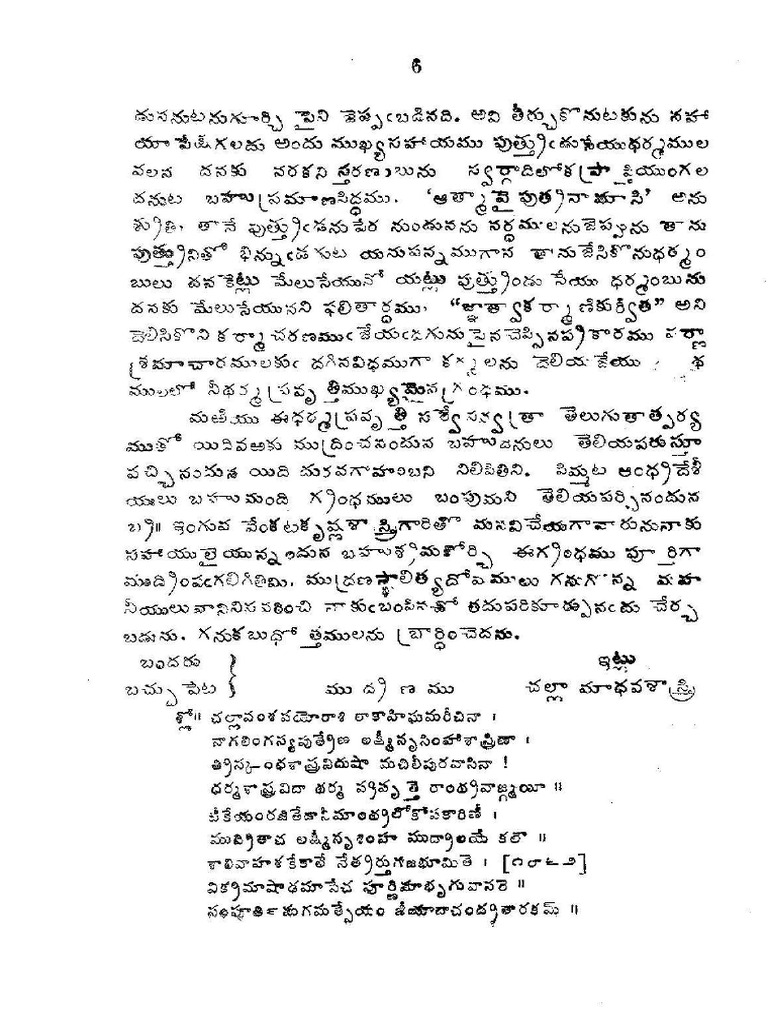 6
డుననుటనుగూర్చి పైని జెప్పఁబడినది. అవి తీర్చుకొనుటకును సహా
యాపేక్షగలదు అందు ముఖ్యసహాయము పుత్త్రుఁడుసేయుధర్మముల
వలన దనకు నరకనిస్తరణంబును స్వర్గాదిలోకప్రాప్తియుంగల
దనుట బహుప్రమాణసిద్ధము. 'ఆత్మావైపుత్రనామాసి' అను
శ్రుతి, తానే పుత్త్రుఁడనుపేర నుండునను నర్థములనుజెప్పును తాను
పుత్త్రునితో భిన్నుఁడగుట యనుపన్నముగాన తానుజేసికొనుధర్మం
బులు దనకెట్లు మేలుసేయునో యట్లు పుత్త్రుండు సేయు ధర్మంబును
దనకు మేలుసేయునని ఫలితార్థము. "జ్ఞాత్వాకర్మాణికుర్వీత" అని
దెలిసికొని కర్మాచరణముఁ జేయఁడగును పైనచెప్పినప్రకారము వర్ణా
శ్రమాచారములకుఁ దగినవిధముగా కర్మలను దెలియజేయు
ములలో నీధర్మప్రవృత్తిముఖ్యమైనగ్రంథము.
మఱియు ఈధర్మప్రవృత్తి తెలుగుతాత్పర్య
ముతో యిదివఱకు ముద్రించనందున బహుజనులు తెలియపరుస్తూ
వచ్చినందున యిది నిలిపితిని. పిమ్మట ఆంధ్రదేశీ
యులు బహుమంది గ్రంథములు బంపుమని తెలియపర్చినందున
బ్ర॥ ఇంగువ వేంకటకృష్ణశాస్త్రిగారితో మనవిచేయగావారునునాకు
సహాయులైయున్నందున బహుశ్రమకోర్చి ఈగ్రంథము పూర్తిగా
ముద్రింపఁగలిగితిమి. ముద్రణస్ఖాలిత్యదోషములు గనుగొన్న మహ
నీయులు వానినిసవరించి నాకుఁబంపినచో తదుపరికూర్పునఁదు చేర్చ
బడును. గనుకబుధోత్తములను బ్రార్థించెదను.
బందరు ఇట్లు
బచ్చుపేట ముద్రణము చల్లా మాధవశాస్త్రి
శ్లో॥ చల్లావంశపయోరాశి రాకాహిఘమరీచినా ।
నాగలింగస్యపుత్రేణ లక్ష్మీనృసింహశాస్త్రిణా ।
త్రిస్కంధశాస్త్రవిదుషా మచిలీపురవాసినా !
ధర్మశాస్త్రవిదా ధర్మ ప్రవృత్తే రాంధ్రవాఙ్మయీ ॥
టీకేయంరచితేకాపీమాంధ్రలోకోపకారిణీ ।
ముద్రితాచ లక్ష్మీనృసింహ ముద్రాలయే కలౌ ॥
శాలివాహశకేకాలే నేత్రర్తుగజభూమితే । [౧౮౬౨]
విక్రమాషాఢమాసేచ పూర్ణిమాభృగువాసరె ।
సంపూర్తిమగమత్సేయం జీయాదాచంద్రతారకమ్ ॥